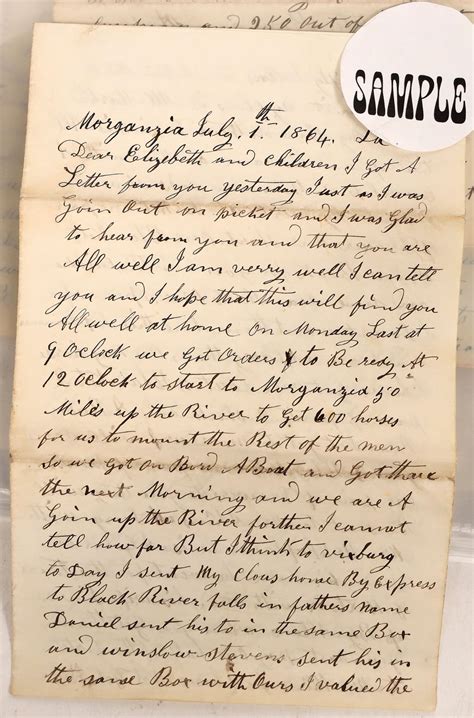 and 250 out of
SAMPLE
Morganzia July, 1.th 1864. La
Dear Elizebeth and children I Got A
Letter from you yesterday Just as I was
Goin Out on picket and I was Glad
to hear from you and that you are
All well I am verry well I can tell
you and I hope that this will find you
All well at home On Monday Last at
9 Oclock we Got Orders to Be redy At
12 Oclock to start to Morganzia 50
Miles up the River to Get 600 horses
for us to mount the Rest of the men
so we Got On Bord A Boat and Got thare
the next Morning and we are A
Goin up the River forther I cannot
tell how far But I think to vixburg
to Day I sent My Clous home By Express
to Black River falls in fathers Name
Daniel sent his to in the same Box
and winslow Stevens sent his in
the same Box with Ours I valued the